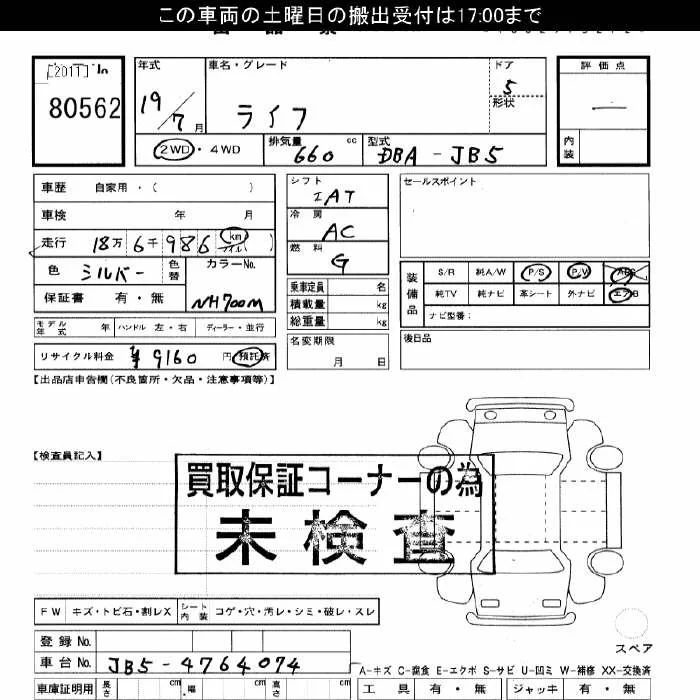 この車両の土曜日の搬出受付は17:00まで
[2017]
80562
年式
19/7月
車名・グレード
ライフ
ドア
5
形状
評価点
—
内装
2WD・4WD
排気量
660 cc
型式
DBA-JB5
車歴 自家用・( )
車検 年 月
走行 18万6千986 km マイル( )
色 シルバー 色替 カラーNo.
保証書 有・無 NH700M
シフト
IAT
冷房
AC
燃料
G
乗車定員 名
積載量 kg
総重量 kg
名変期限
月 日
セールスポイント
装備品
S/R 純A/W P/S P/W ABS
純TV 純ナビ 革シート 外ナビ エアB
ナビ型番:
後日品
モデル年式 年 ハンドル 左・右 ディーラー・並行
リサイクル料金 ¥9160 円 預託済
【出品店申告欄(不良箇所・欠品・注意事項等)】
【検査員記入】
買取保証コーナーの為
未検査
FW キズ・トビ石・割レX シート内装 コゲ・穴・汚レ・シミ・破レ・スレ
登録No.
車台No. JB5-4764074
スペア
A-キズ C-腐食 E-エクボ S-サビ U-凹ミ W-補修 XX-交換済
車庫証明用 長さ cm 幅 cm 高さ cm
工具 有・無 ジャッキ 有・無